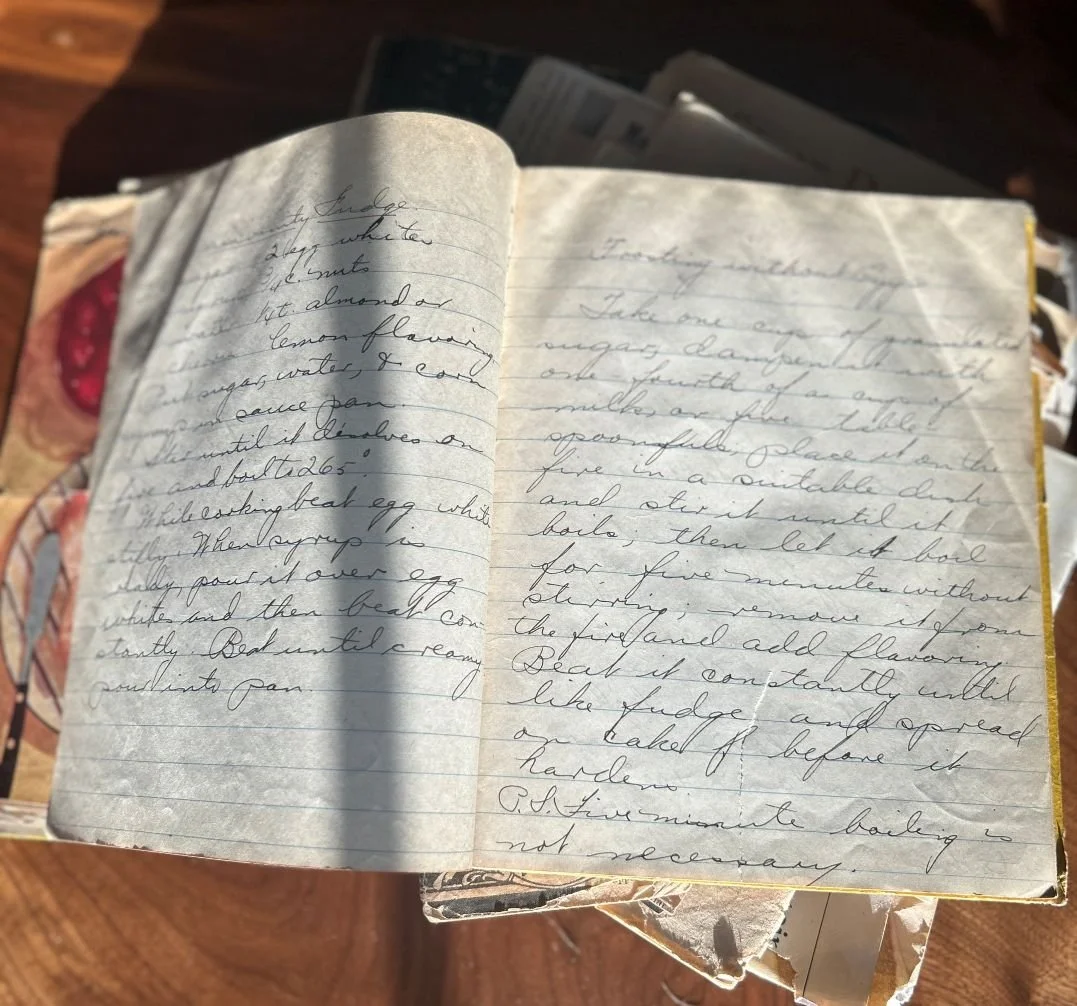 Fudge
2 egg whites
3/4 c. nuts
1/4 t. almond or
lemon flavoring
sugar, water, & corn
in sauce pan.
until it disolves on
fire and boil to 265°.
While cooking beat egg white
stifly. When syrup is
ready, pour it over egg
whites and then beat con-
stantly. Beat until creamy
pour into pan.
Frosting without Eggs
Take one cup of granulated
sugar, dampened with
one fourth of a cup of
milk, or five table
spoonfuls, place it on the
fire in a suitable dish
and stir it until it
boils; then let it boil
for five minutes without
stirring; remove it from
the fire and add flavoring.
Beat it constantly until
like fudge, and spread
on cake before it
hardens.
P.S. Five minute boiling is
not necessary.